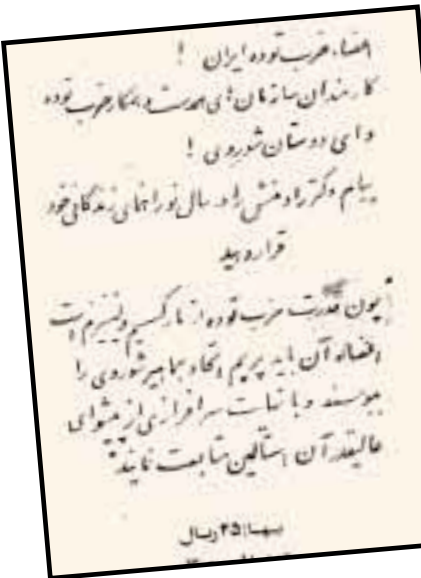 اعضاء حزب توده ایران !
کارمندان سازمان های همدست و همکار حزب توده
و ای دوستان شوروی !
پیام دکتر رادمنش را در سال نو راهنمای زندگانی خود
قرار دهید
چون قدرت حزب توده از مارکسیسم و لنینیزم است
اعضاء آن باید پرچم اتحاد جماهیر شوروی را
ببوسند و با ثبات و سرافرازی از پیشوای
عالیقدر آن استالین متابعت نمایند
بهاء: ۲۵ ریال